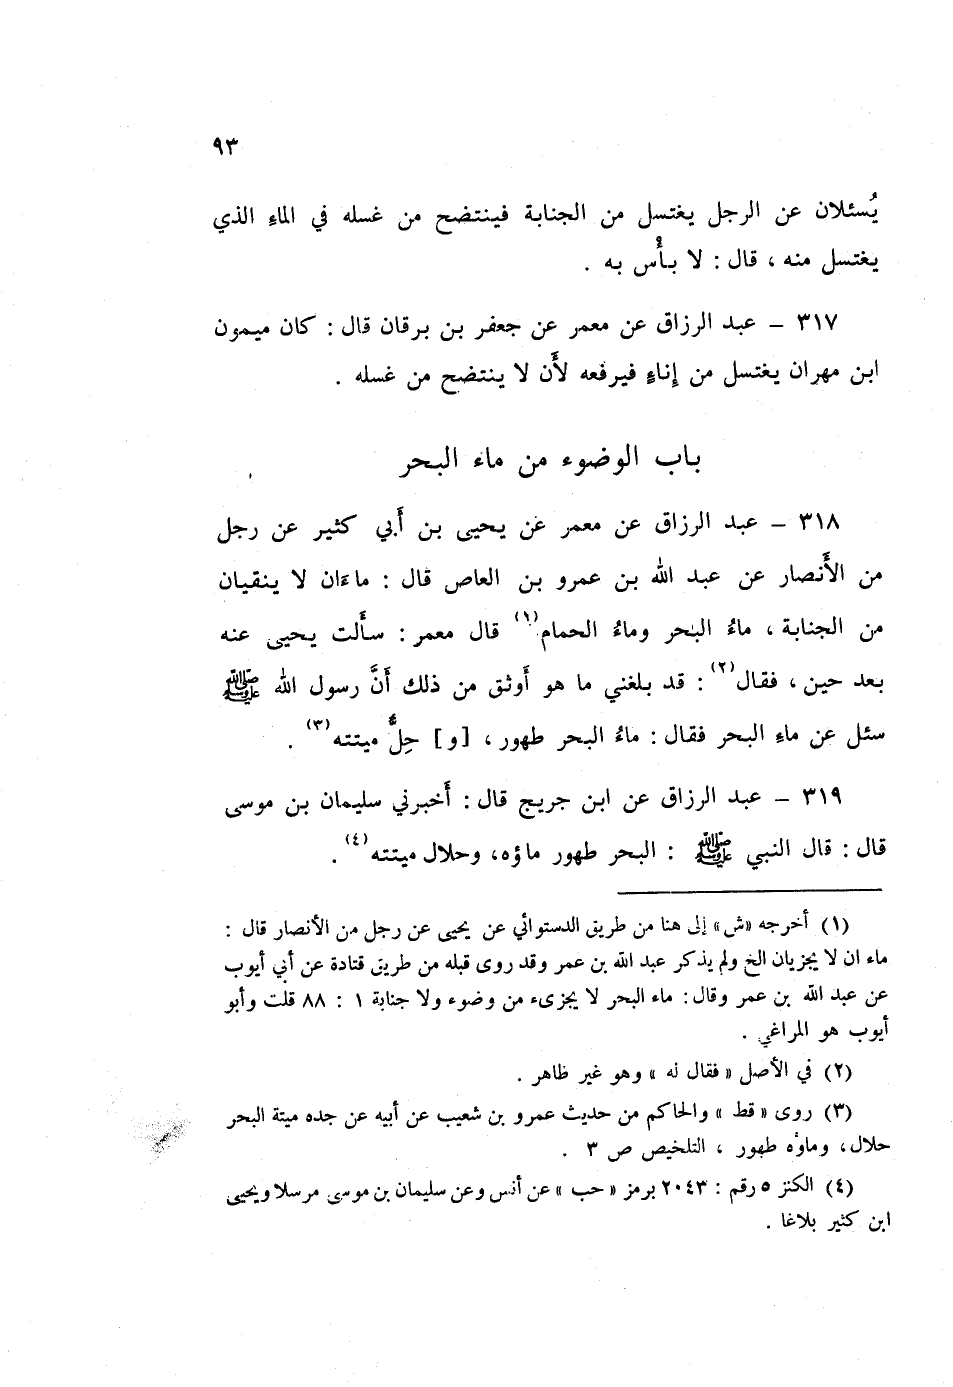 ٩٣
يُسئلان عن الرجل يغتسل من الجنابة فينتضح من غسله في الماءِ الذي
يغتسل منه ، قال : لا بأْس به .
٣١٧ – عبد الرزاق عن معمر عن جعفر بن برقان قال : كان ميمون
ابن مهران يغتسل من إناءٍ فيرفعه لأَن لا ينتضح من غسله .
باب الوضوء من ماء البحر
٣١٨ – عبد الرزاق عن معمر عن يحيى بن أَبي كثير عن رجل
من الأَنصار عن عبد الله بن عمرو بن العاص قال : ماءَان لا ينقيان
من الجنابة ، ماءُ البحر وماءُ الحمام(١) قال معمر : سأَلت يحيى عنه
بعد حين ، فقال(٢) : قد بلغني ما هو أَوثق من ذلك أَنَّ رسول الله ﷺ
سئل عن ماءِ البحر فقال : ماءُ البحر طهور ، [و] حِلٌّ ميتته(٣) .
٣١٩ – عبد الرزاق عن ابن جريج قال : أَخبرني سليمان بن موسى
قال : قال النبي ﷺ : البحر طهور ماؤه، وحلال ميتته(٤) .
(١) أخرجه «ش» إلى هنا من طريق الدستوائي عن يحيى عن رجل من الأنصار قال :
ماء ان لا يجزيان الخ ولم يذكر عبد الله بن عمر وقد روى قبله من طريق قتادة عن أبي أيوب
عن عبد الله بن عمر وقال : ماء البحر لا يجزىء من وضوء ولا جنابة ١ : ٨٨ قلت وأبو
أيوب هو المراغي .
(٢) في الأصل « فقال له » وهو غير ظاهر .
(٣) روى « قط » والحاكم من حديث عمرو بن شعيب عن أبيه عن جده ميتة البحر
حلال، وماؤه طهور ، التلخيص ص ٣ .
(٤) الكنز ٥ رقم : ٢٠٤٣ برمز « حب » عن أنس وعن سليمان بن موسى مرسلا ويحيى
ابن كثير بلاغا .